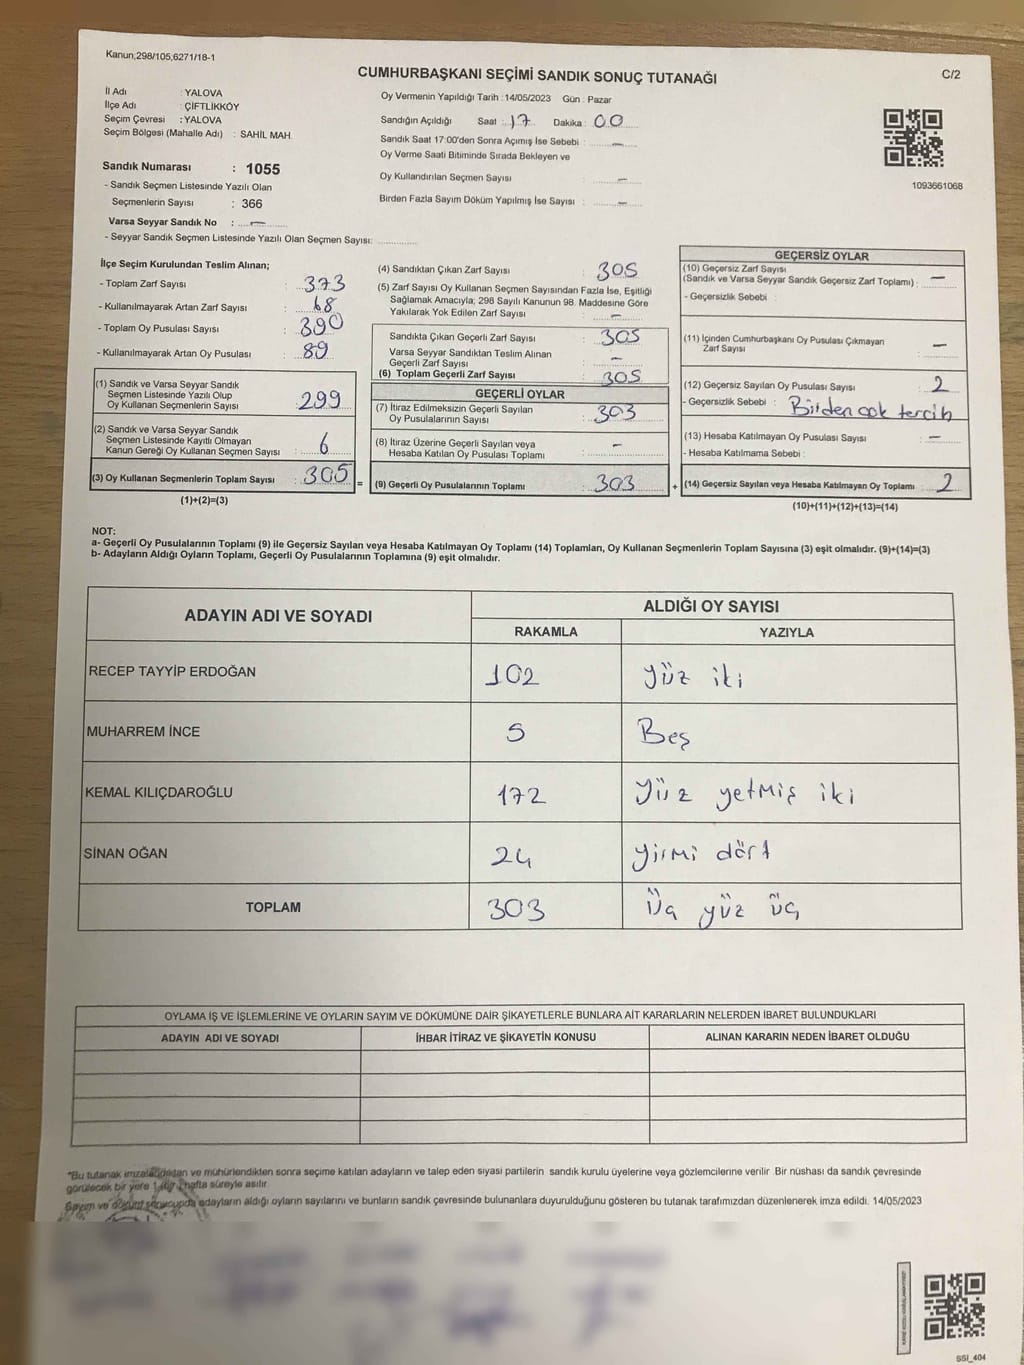 Kanun;298/105;6271/18-1
CUMHURBAŞKANI SEÇİMİ SANDIK SONUÇ TUTANAĞI
C/2
İl Adı : YALOVA
İlçe Adı : ÇİFTLİKKÖY
Seçim Çevresi : YALOVA
Seçim Bölgesi (Mahalle Adı) : SAHİL MAH.
Sandık Numarası : 1055
- Sandık Seçmen Listesinde Yazılı Olan
Seçmenlerin Sayısı : 366
Varsa Seyyar Sandık No : —
- Seyyar Sandık Seçmen Listesinde Yazılı Olan Seçmen Sayısı:
Oy Vermenin Yapıldığı Tarih : 14/05/2023 Gün : Pazar
Sandığın Açıldığı Saat : 17 Dakika : 00
Sandık Saat 17:00'den Sonra Açımış İse Sebebi : —
Oy Verme Saati Bitiminde Sırada Bekleyen ve
Oy Kullandırılan Seçmen Sayısı : —
Birden Fazla Sayım Döküm Yapılmış İse Sayısı : —
1093661068
İlçe Seçim Kurulundan Teslim Alınan;
- Toplam Zarf Sayısı : 373
- Kullanılmayarak Artan Zarf Sayısı : 68
- Toplam Oy Pusulası Sayısı : 390
- Kullanılmayarak Artan Oy Pusulası : 89
(1) Sandık ve Varsa Seyyar Sandık
Seçmen Listesinde Yazılı Olup
Oy Kullanan Seçmenlerin Sayısı : 299
(2) Sandık ve Varsa Seyyar Sandık
Seçmen Listesinde Kayıtlı Olmayan
Kanun Gereği Oy Kullanan Seçmen Sayısı : 6
(3) Oy Kullanan Seçmenlerin Toplam Sayısı : 305 =
(1)+(2)=(3)
(4) Sandıktan Çıkan Zarf Sayısı : 305
(5) Zarf Sayısı Oy Kullanan Seçmen Sayısından Fazla İse, Eşitliği
Sağlamak Amacıyla; 298 Sayılı Kanunun 98. Maddesine Göre
Yakılarak Yok Edilen Zarf Sayısı : —
Sandıkta Çıkan Geçerli Zarf Sayısı : 305
Varsa Seyyar Sandıktan Teslim Alınan
Geçerli Zarf Sayısı : —
(6) Toplam Geçerli Zarf Sayısı : 305
GEÇERLİ OYLAR
(7) İtiraz Edilmeksizin Geçerli Sayılan
Oy Pusulalarının Sayısı : 303
(8) İtiraz Üzerine Geçerli Sayılan veya
Hesaba Katılan Oy Pusulası Toplamı : —
(9) Geçerli Oy Pusulalarının Toplamı : 303 +
GEÇERSİZ OYLAR
(10) Geçersiz Zarf Sayısı
(Sandık ve Varsa Seyyar Sandık Geçersiz Zarf Toplamı) : —
- Geçersizlik Sebebi :
(11) İçinden Cumhurbaşkanı Oy Pusulası Çıkmayan
Zarf Sayısı : —
(12) Geçersiz Sayılan Oy Pusulası Sayısı : 2
- Geçersizlik Sebebi : Birden çok tercih
(13) Hesaba Katılmayan Oy Pusulası Sayısı : —
- Hesaba Katılmama Sebebi :
(14) Geçersiz Sayılan veya Hesaba Katılmayan Oy Toplamı : 2
(10)+(11)+(12)+(13)=(14)
NOT:
a- Geçerli Oy Pusulalarının Toplamı (9) ile Geçersiz Sayılan veya Hesaba Katılmayan Oy Toplamı (14) Toplamları, Oy Kullanan Seçmenlerin Toplam Sayısına (3) eşit olmalıdır. (9)+(14)=(3)
b- Adayların Aldığı Oyların Toplamı, Geçerli Oy Pusulalarının Toplamına (9) eşit olmalıdır.
ADAYIN ADI VE SOYADI ALDIĞI OY SAYISI
RAKAMLA YAZIYLA
RECEP TAYYİP ERDOĞAN 102 Yüz iki
MUHARREM İNCE 5 Beş
KEMAL KILIÇDAROĞLU 172 Yüz yetmiş iki
SİNAN OĞAN 24 yirmi dört
TOPLAM 303 Üç yüz üç
OYLAMA İŞ VE İŞLEMLERİNE VE OYLARIN SAYIM VE DÖKÜMÜNE DAİR ŞİKAYETLERLE BUNLARA AİT KARARLARIN NELERDEN İBARET BULUNDUKLARI
ADAYIN ADI VE SOYADI İHBAR İTİRAZ VE ŞİKAYETİN KONUSU ALINAN KARARIN NEDEN İBARET OLDUĞU
*Bu tutanak imzalandıktan ve mühürlendikten sonra seçime katılan adayların ve talep eden siyasi partilerin sandık kurulu üyelerine veya gözlemcilerine verilir. Bir nüshası da sandık çevresinde
görülecek bir yere 1 (bir) hafta süreyle asılır.
Sayım ve döküm sonucunda adayların aldığı oyların sayılarını ve bunların sandık çevresinde bulunanlara duyurulduğunu gösteren bu tutanak tarafımızdan düzenlenerek imza edildi. 14/05/2023
SSİ_404